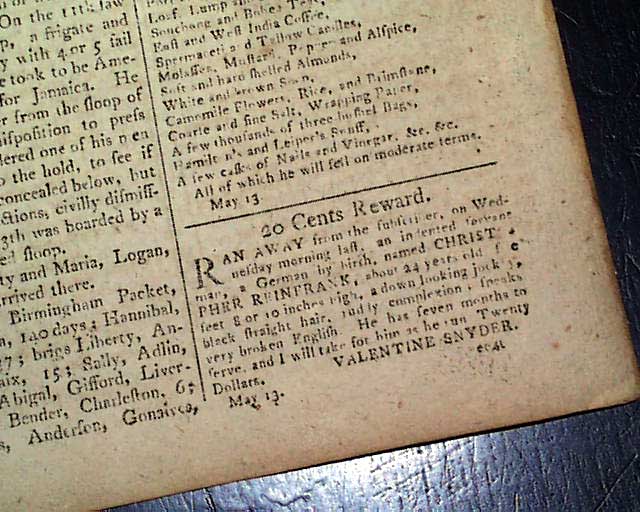 On the 11th law
P, a frigate and
y with 4 or 5 sail
e took to be Ame-
for Jamaica. He
er from the sloop of
isposition to press
dered one of his men
o the hold, to see if
concealed below, but
ctions, civilly dismiss-
3th was boarded by a
ed sloop.
ty and Maria, Logan,
arrived there.
Birmingham Packet,
n, 140 days; Hannibal,
27; brigs Liberty, An-
aix, 15; Sally, Adlin,
Abigal, Gifford, Liver-
Bender, Charleston, 6;
s, Anderson, Gonaives,
Loaf, Lump and
Souchong and Bohea Teas,
East and West India Coffee,
Spermaceti and Tallow Candles,
Molasses, Mustard, Pepper and Alspice,
Soft and hard shelled Almonds,
White and brown Soap,
Camomile Flowers, Rice, and Brimstone,
Coarse and fine Salt, Wrapping Paper,
A few thousands of three bushel Bags,
Hamilton's and Leiper's Snuff,
A few casks of Nails and Vinegar, &c. &c.
All of which he will sell on moderate terms.
May 13.
20 Cents Reward.
RAN AWAY from the subscriber, on Wed-
nesday morning last, an indented servant
man, a German by birth, named CHRISTO
PHER REINFRANK, about 24 years old, 5
feet 8 or 10 inches high, a down looking
black straight hair, ruddy complexion; speaks
very broken English. He has seven months to
serve, and I will take for him as he run Twenty
Dollars.
VALENTINE SNYDER.
May 13.